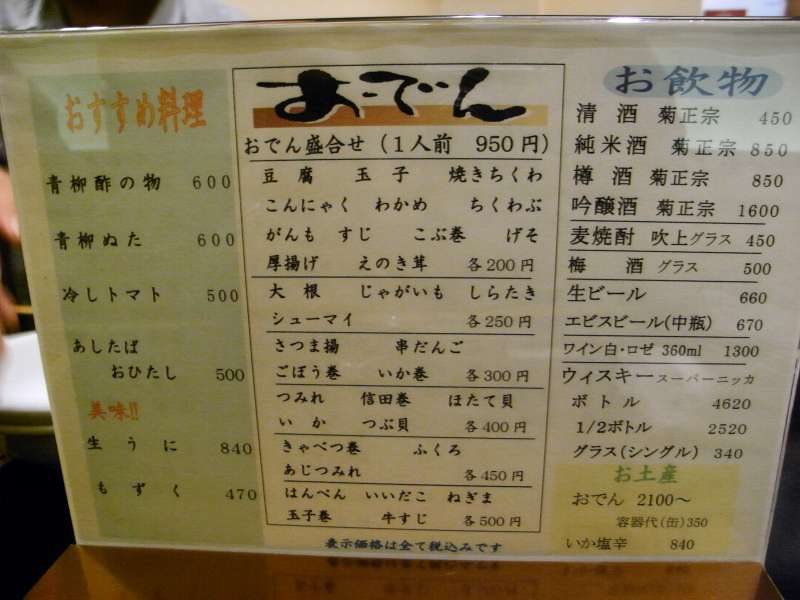 おすすめ料理
青柳酢の物 600
青柳ぬた 600
冷しトマト 500
あしたば
おひたし 500
美味!!
生うに 840
もずく 470
おでん
おでん盛合せ(1人前 950円)
豆腐 玉子 焼きちくわ
こんにゃく わかめ ちくわぶ
がんも すじ こぶ巻 げそ
厚揚げ えのき茸 各200円
大根 じゃがいも しらたき
シューマイ 各250円
さつま揚 串だんご
ごぼう巻 いか巻 各300円
つみれ 信田巻 ほたて貝
いか つぶ貝 各400円
きゃべつ巻 ふくろ
あじつみれ 各450円
はんぺん いいだこ ねぎま
玉子巻 牛すじ 各500円
表示価格は全て税込みです
お飲物
清酒 菊正宗 450
純米酒 菊正宗 850
樽酒 菊正宗 850
吟醸酒 菊正宗 1600
麦焼酎 吹上グラス 450
梅酒 グラス 500
生ビール 660
エビスビール(中瓶) 670
ワイン白・ロゼ 360ml 1300
ウィスキー スーパーニッカ
ボトル 4620
1/2ボトル 2520
グラス(シングル) 340
お土産
おでん 2100~
容器代(缶)350
いか塩辛 840